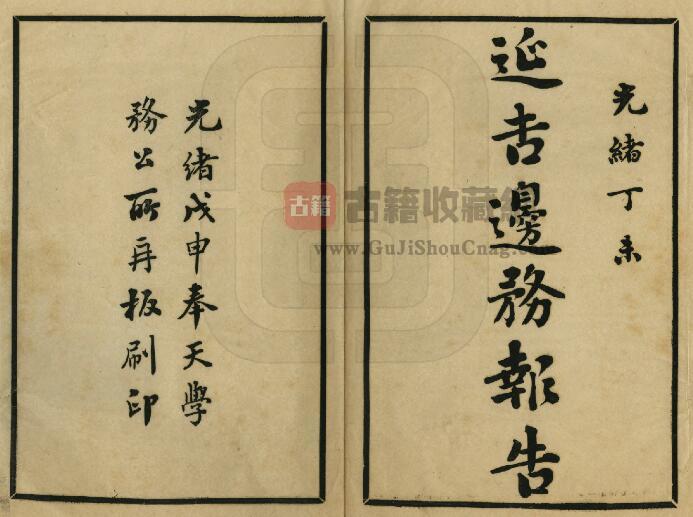 光緒丁未
延吉邊務報告
光緒戊申奉天學
務公所再板刷印
古籍
古籍收藏
www.GuJiShouCnag.com